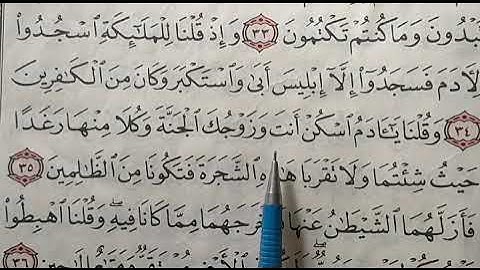 تُبْدُونَ وَمَا كُنتُمْ تَكْتُمُونَ ٣٣ وَإِذْ قُلْنَا لِلْمَلَٰٓئِكَةِ ٱسْجُدُوا۟
لِأٓدَمَ فَسَجَدُوٓا۟ إِلَّآ إِبْلِيسَ أَبَىٰ وَٱسْتَكْبَرَ وَكَانَ مِنَ ٱلْكَٰفِرِينَ
٣٤ وَقُلْنَا يَٰٓـَٔادَمُ ٱسْكُنْ أَنتَ وَزَوْجُكَ ٱلْجَنَّةَ وَكُلَا مِنْهَا رَغَدًا
حَيْثُ شِئْتُمَا وَلَا تَقْرَبَا هَٰذِهِ ٱلشَّجَرَةَ فَتَكُونَا مِنَ ٱلظَّٰلِمِينَ ٣٥
فَأَزَلَّهُمَا ٱلشَّيْطَٰنُ عَنْهَا فَأَخْرَجَهُمَا مِمَّا كَانَا فِيهِ ۖ وَقُلْنَا ٱهْبِطُوا۟